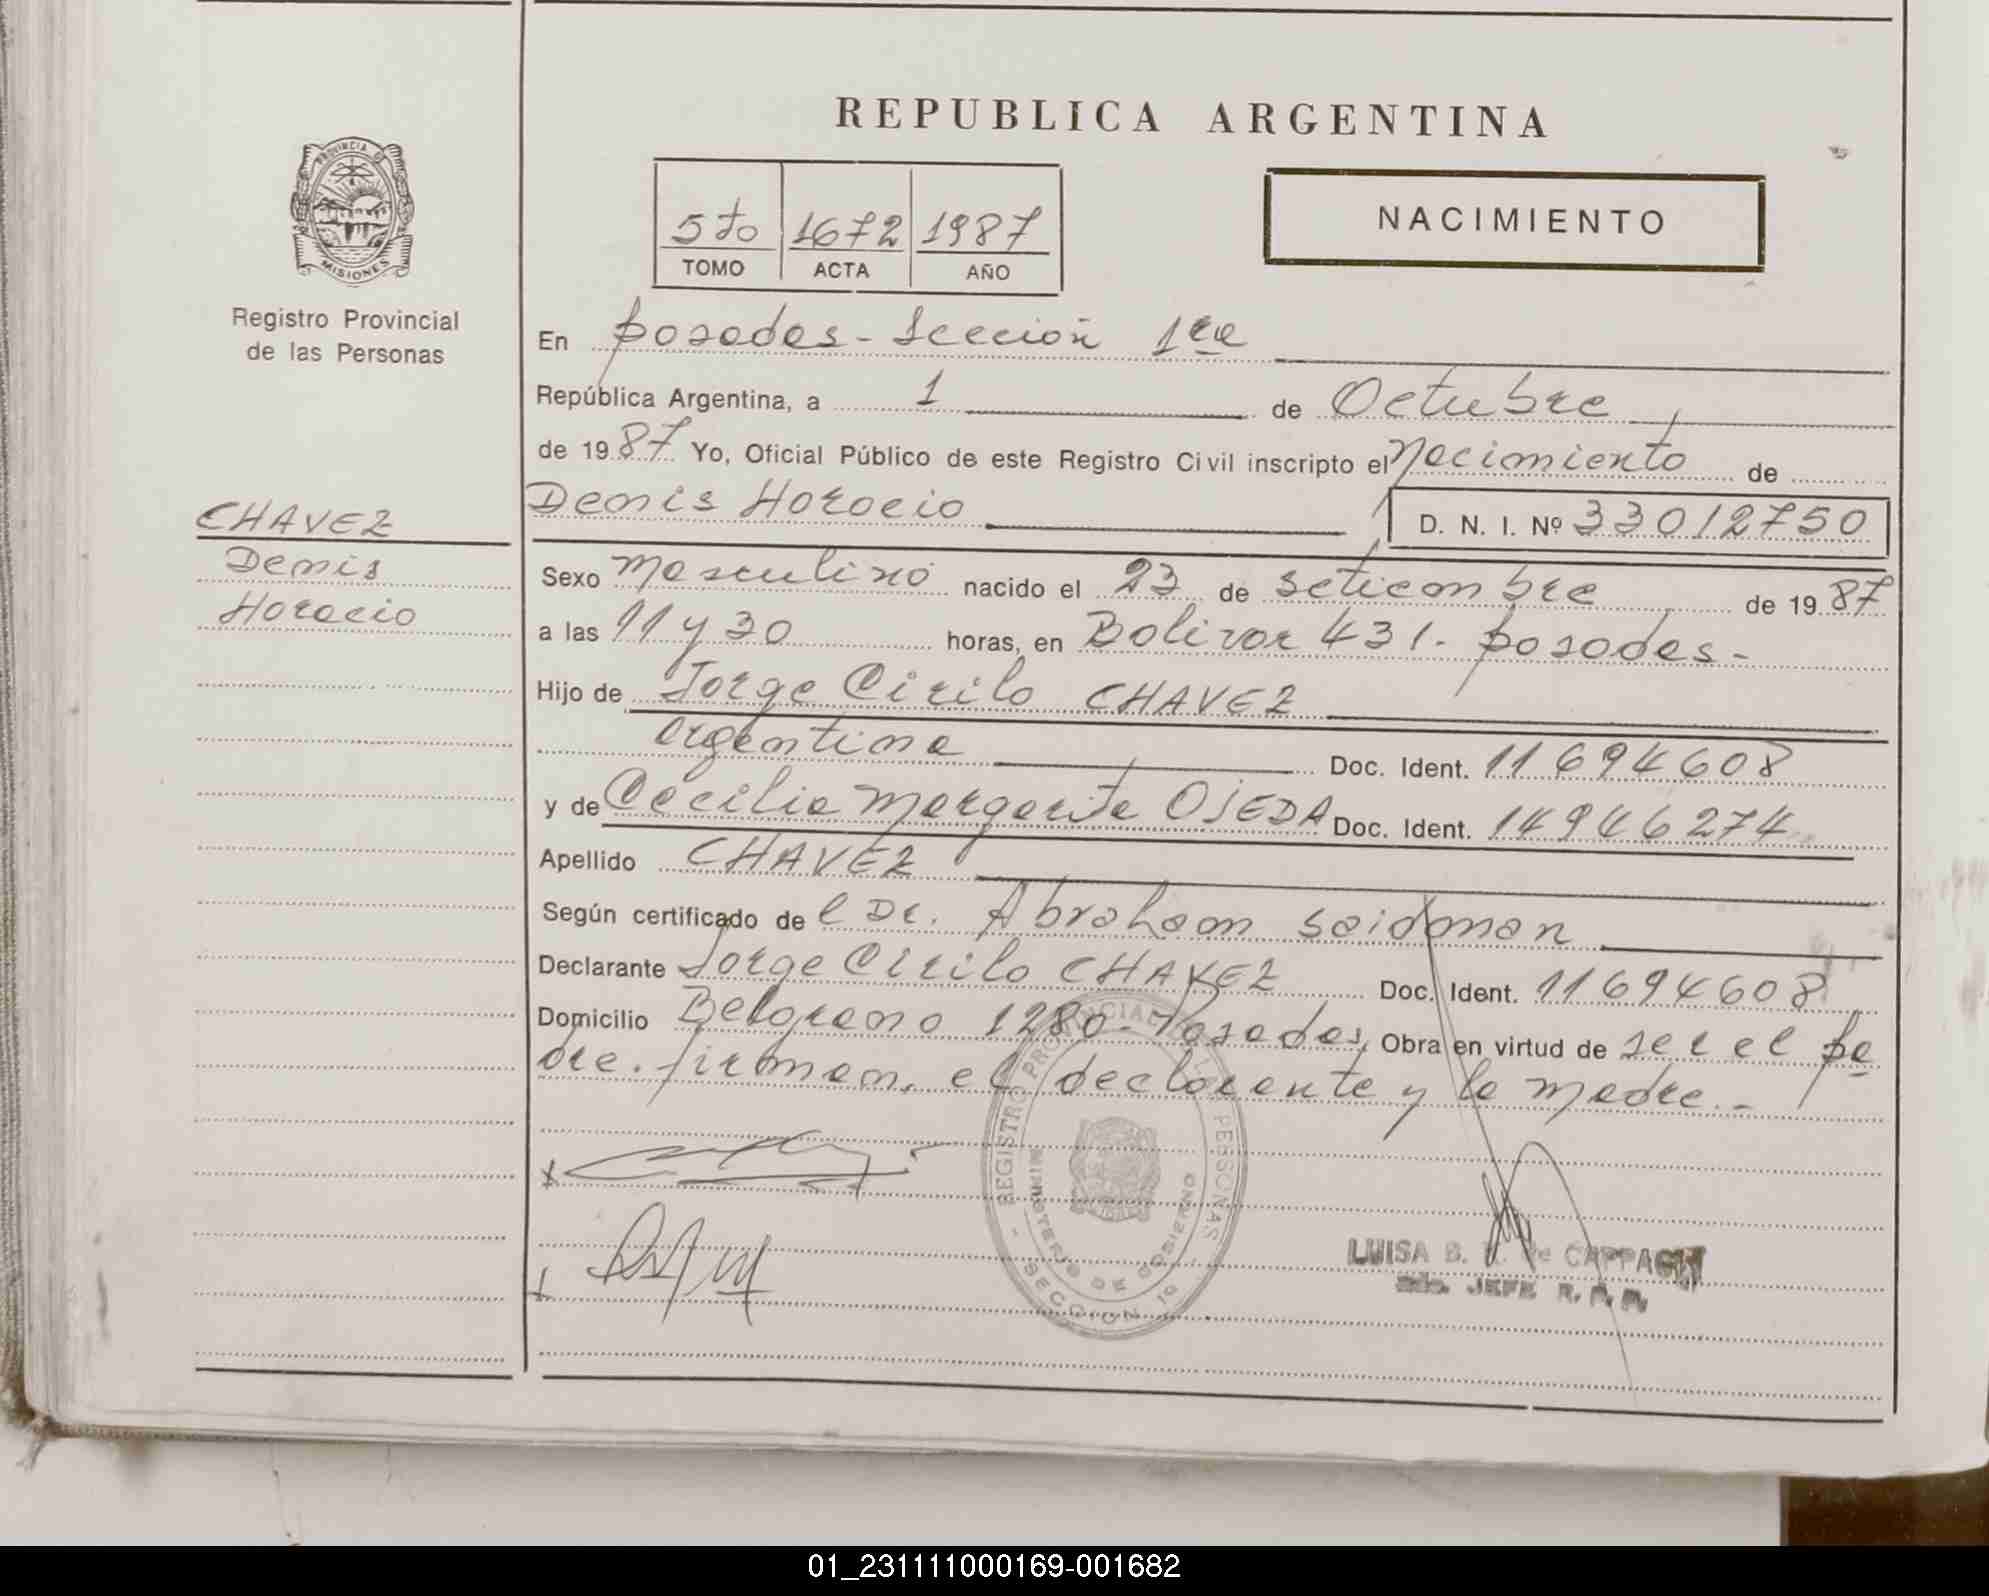 REPUBLICA ARGENTINA
PROVINCIA D
MISIONES
Registro Provincial
de las Personas
5to 1672 1987
TOMO ACTA AÑO
NACIMIENTO
En Posadas - Sección 1ra
República Argentina, a 1 de Octubre
de 1987 Yo, Oficial Público de este Registro Civil inscripto el Nacimiento de
Denis Horacio D. N. I. Nº 33012750
CHAVEZ
Denis
Horacio
Sexo Masculino nacido el 23 de Setiembre de 1987
a las 11 y 30 horas, en Bolivar 431. Posadas-
Hijo de Jorge Cirilo CHAVEZ
argentina Doc. Ident. 11694608
y de Cecilia Margarita OJEDA Doc. Ident. 14946274
Apellido CHAVEZ
Según certificado de l Dr. Abraham Saidman
Declarante Jorge Cirilo CHAVEZ Doc. Ident. 11694608
Domicilio Belgrano 1280-Posadas, Obra en virtud de ser el pa
dre. firman, el declarante y la madre.-
REGISTRO PROVINCIAL PERSONAS
MINISTERIO DE GOBIERNO
- SECCION 1º -
LUISA B. de CAPPAGLI
2do. JEFE R. P. P.
01_231111000169-001682